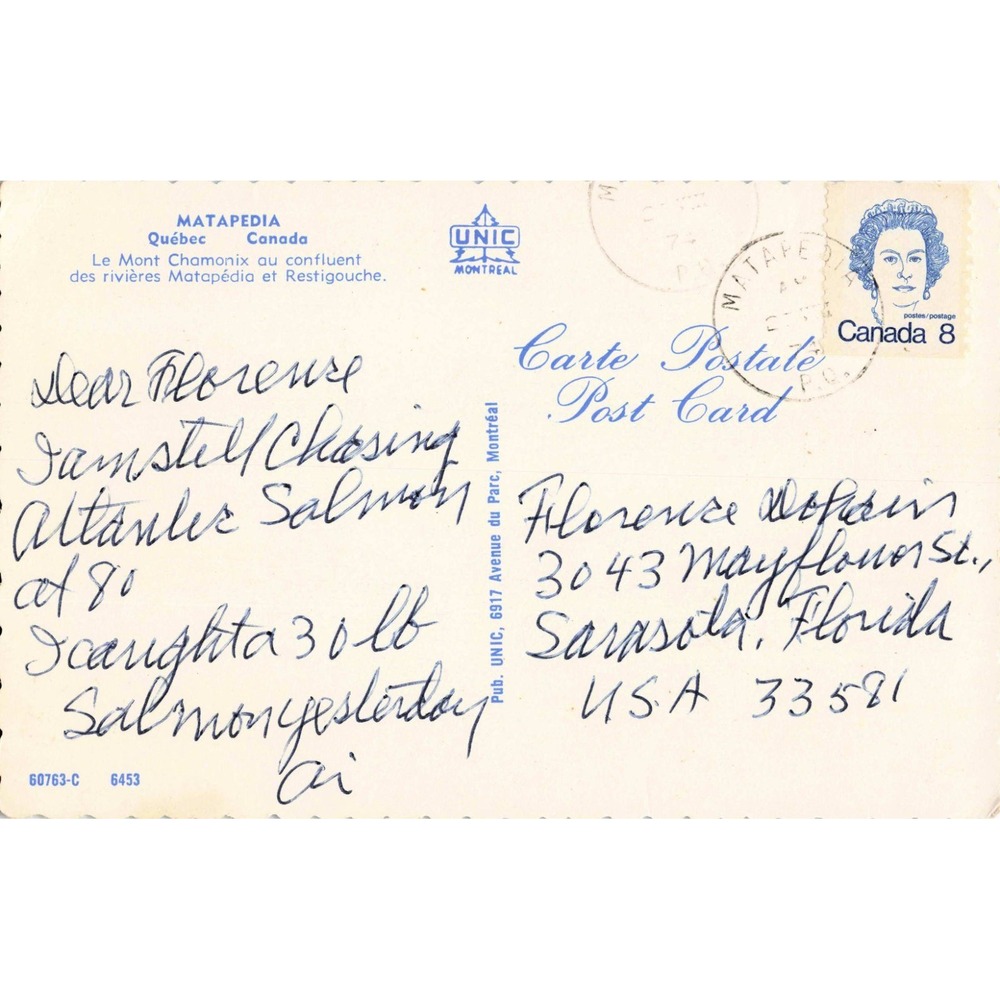 MATAPEDIA
Québec Canada
Le Mont Chamonix au confluent
des rivières Matapédia et Restigouche.
UNIC
MONTREAL
postes/postage
Canada 8
MATAPEDIA
P.Q.
Carte Postale
Post Card
Dear Florence
I am still Chasing
Atlantic Salmon
at 80
I caught a 30 lb
Salmon yesterday
Pub. UNIC, 6917 Avenue du Parc, Montréal
Florence
3043 Mayflower St.,
Sarasota, Florida
U.S.A 33581
60763-C 6453